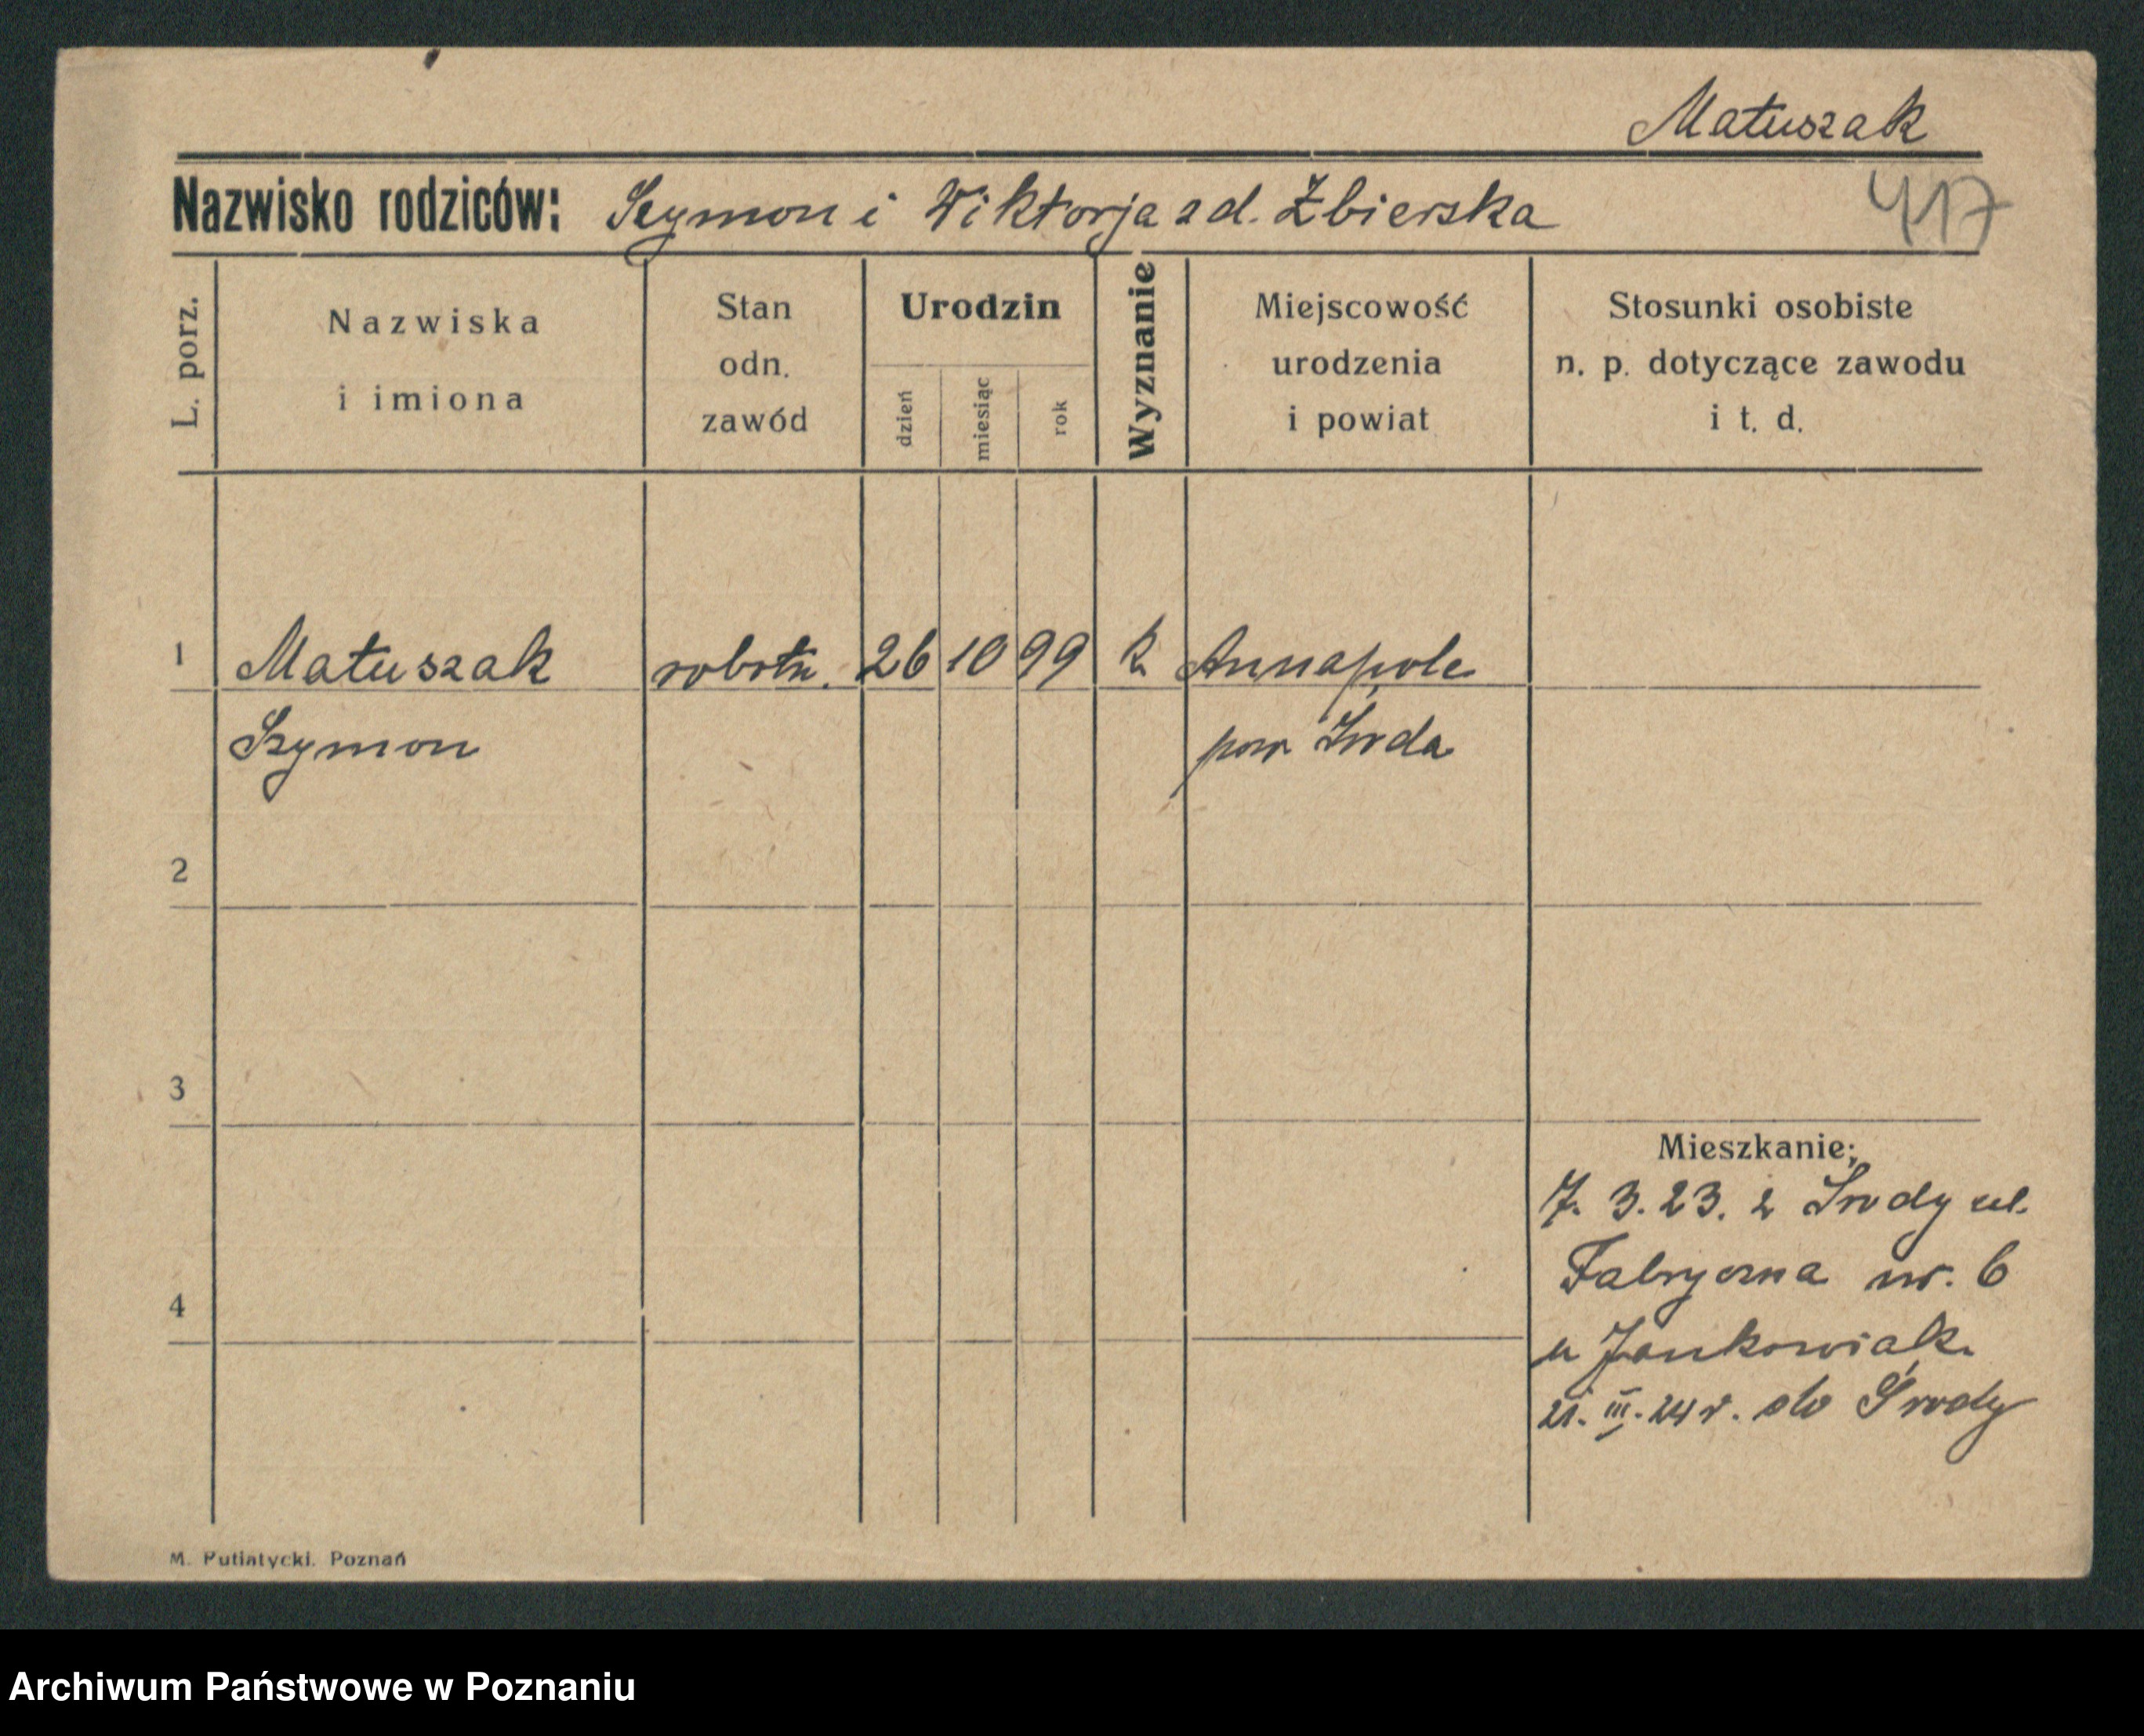 Matuszak
Nazwisko rodziców: Szymon i Wiktorja zd. Żbierska
417
L. porz.
Nazwiska
i imiona
Stan
odn.
zawód
Urodzin
dzień
miesiąc
rok
Wyznanie
Miejscowość
urodzenia
i powiat
Stosunki osobiste
n. p. dotyczące zawodu
i t. d.
1 Matuszak robotn. 26 10 99 k Annapole
Szymon pow Środa
2
3
4
Mieszkanie:
7. 3. 23. z Środy ul.
Fabryczna nr. 6
u Jankowiak.
21. III. 24 r. do Środy
M. Putiatycki. Poznań
Archiwum Państwowe w Poznaniu